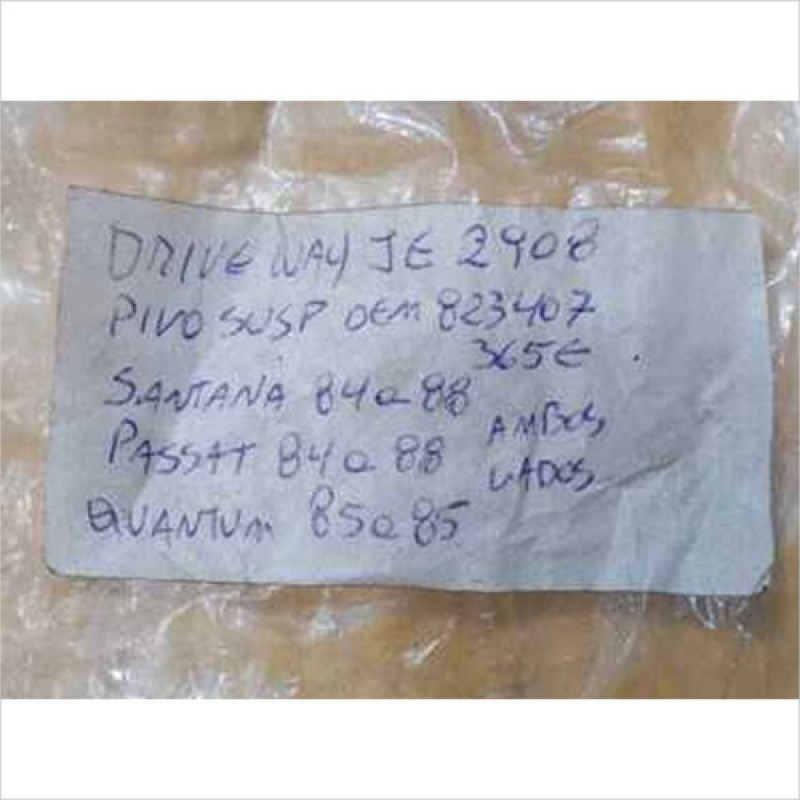 DRIVE WAY JE 2908
PIVO SUSP OEM 823407
365E
SANTANA 84 a 88
AMBOS
PASSAT 84 a 88
LADOS
QUANTUM 85 a 85